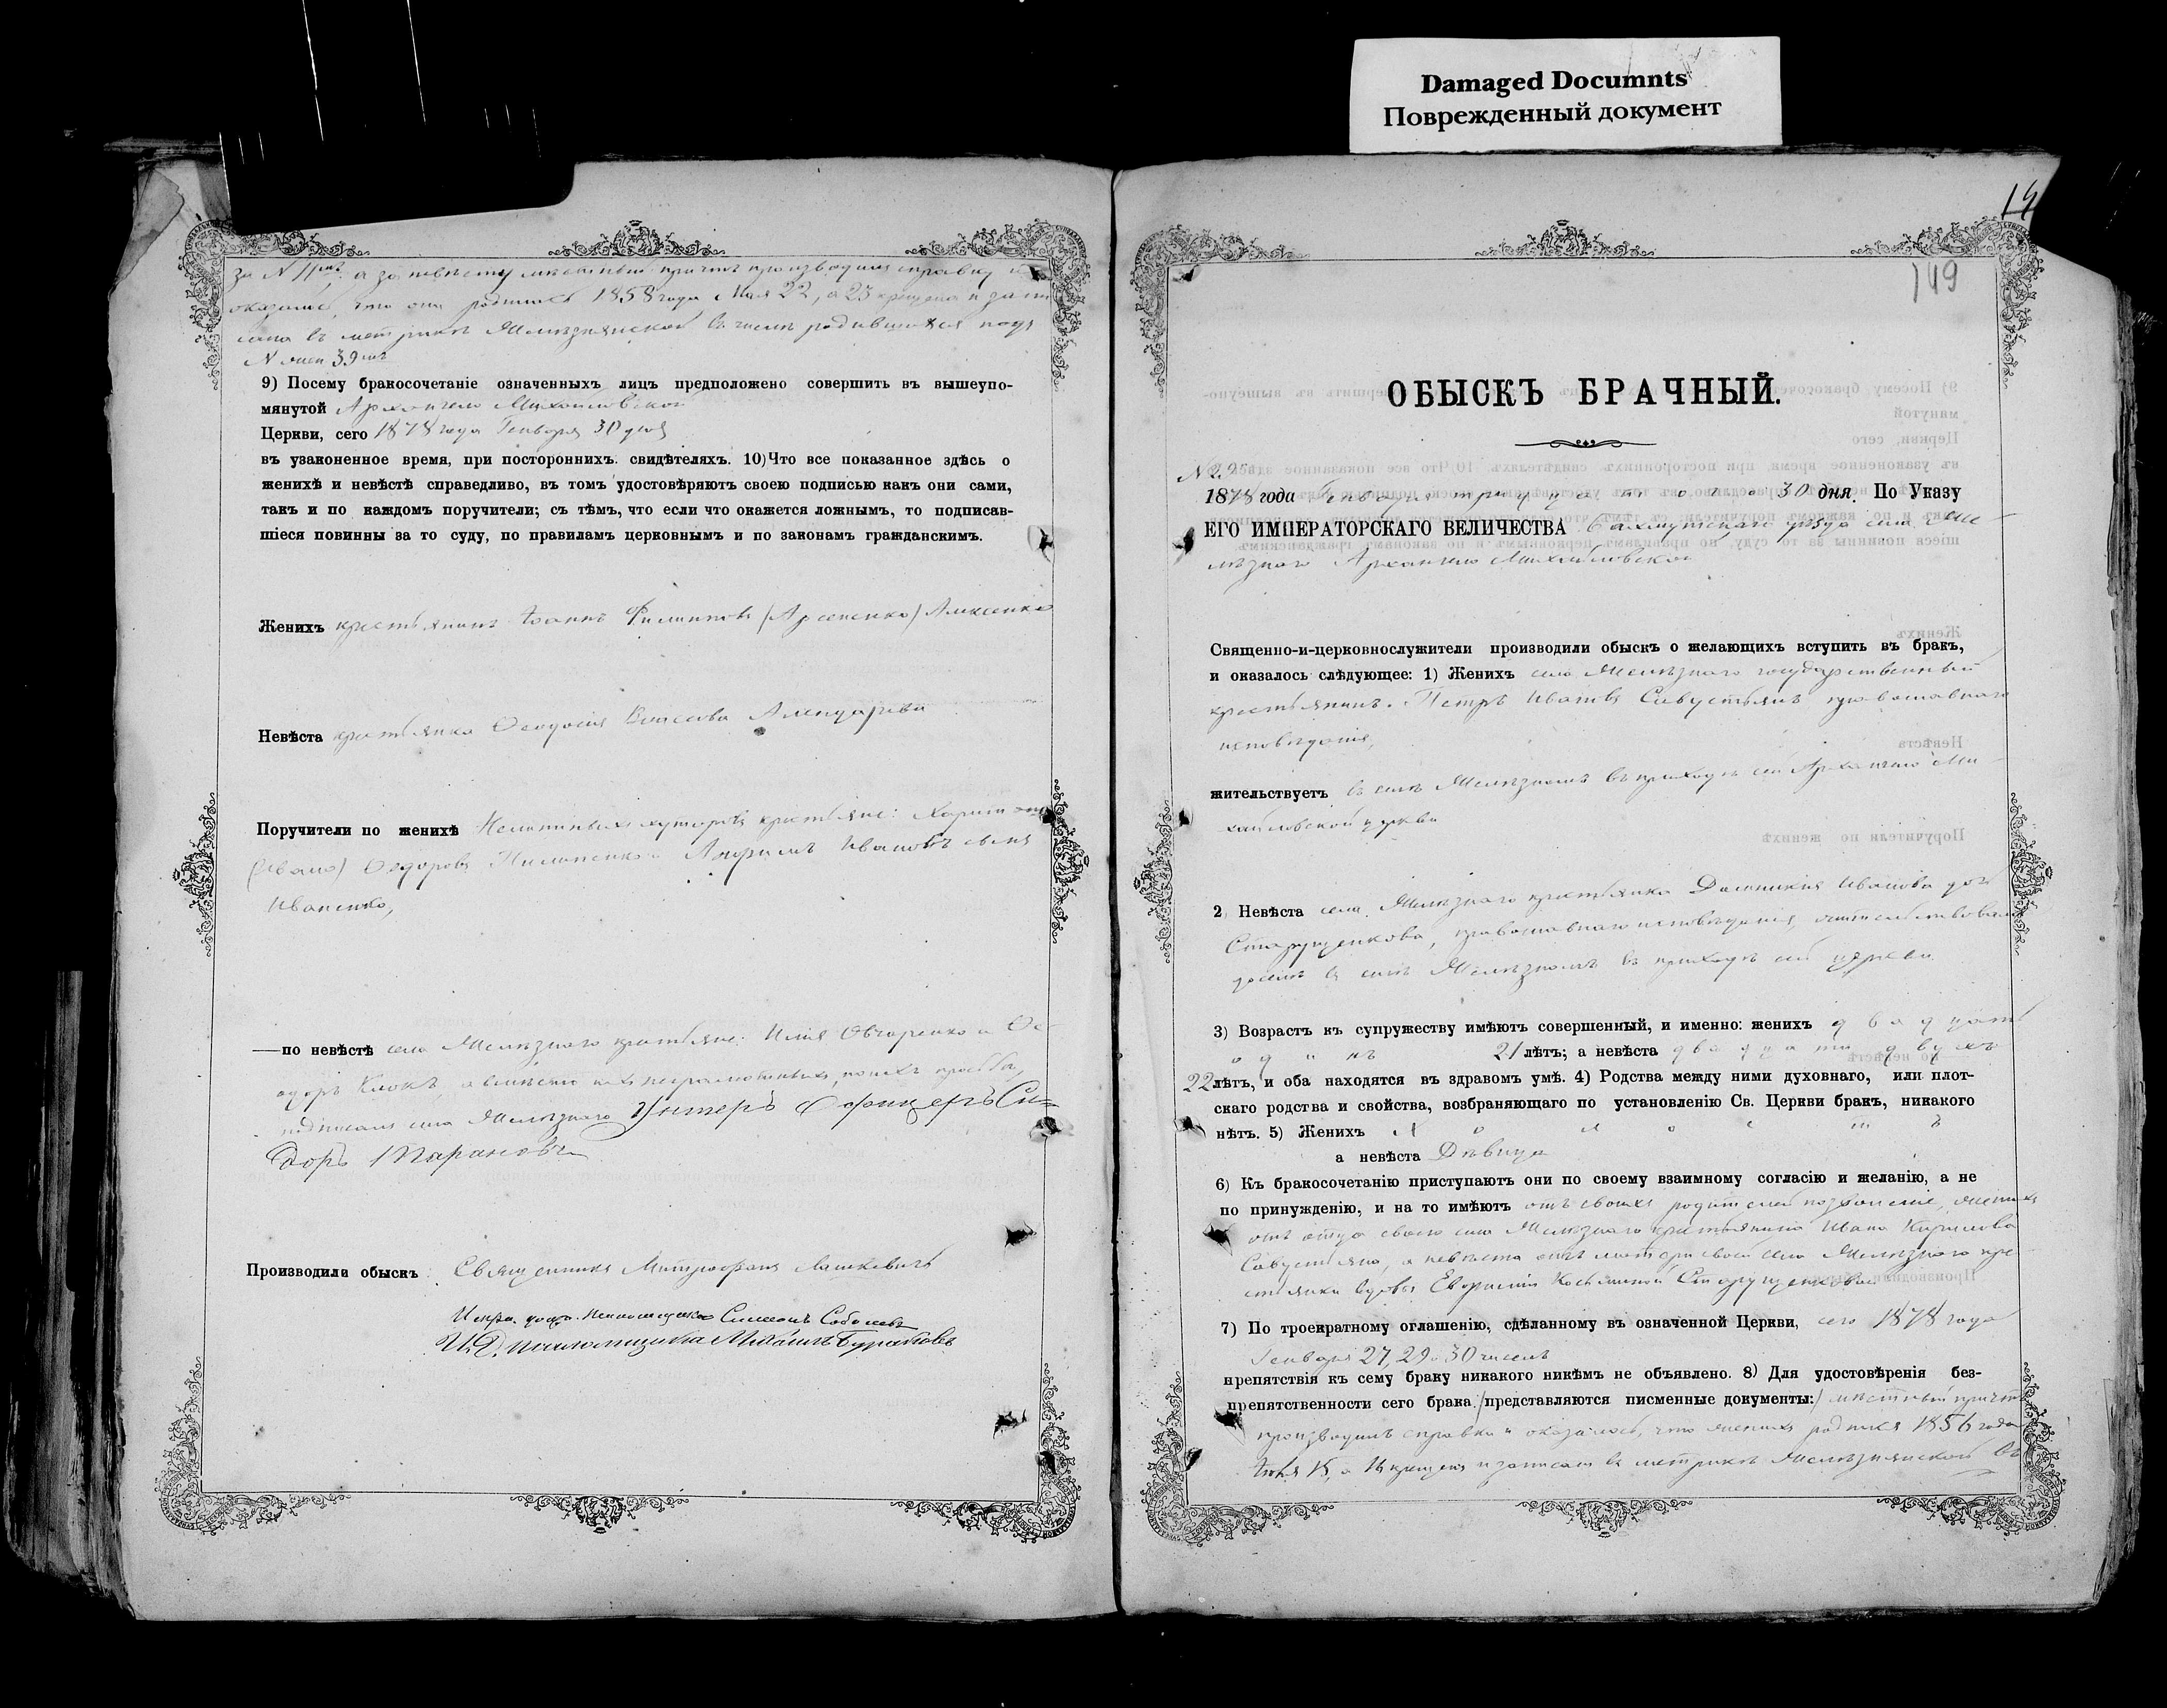 Damaged Documnts
Поврежденный документ
за N 11мъ, а за невѣсту мѣстный причтъ производилъ справку и
оказалось, что она родилась 1858 года Мая 22, а 23 крещена и запи
сана въ метрикѣ Желѣзнянской въ числѣ родившихся подъ
N 39мъ
9) Посему бракосочетаніе означенныхъ лицъ предположено совершить въ вышеупо-
мянутой Архангело Михайловской
Церкви, сего 1878 года Генваря 30 дня
въ узаконенное время, при постороннихъ свидѣтеляхъ. 10) Что все показанное здѣсь о
женихѣ и невѣстѣ справедливо, въ томъ удостовѣряютъ своею подписью какъ они сами,
такъ и по каждомъ поручители; съ тѣмъ, что если что окажется ложнымъ, то подписав-
шіеся повинны за то суду, по правиламъ церковнымъ и по законамъ гражданскимъ.
Женихъ крестьянинъ Іоаннъ Филиповъ (Арсененко) Алексенко
Невѣста крестьянка Ѳеодосія Власова
Поручители по женихѣ хуторовъ крестьяне: Харитонъ
(Ивано) Ѳедоровъ Ивановъ сынъ
Иваненко,
— по невѣстѣ села Желѣзнаго крестьяне: Илія Овчаренко и Ѳе-
одоръ Клокъ, а вмѣсто ихъ неграмотныхъ, по ихъ просьбѣ,
подписалъ села Желѣзнаго Унтеръ Офицеръ Си=
доръ Тарановъ
Производили обыскъ Священникъ Митрофанъ Лашкевичъ
Испр. долж. Псаломщика Симеонъ Соболевъ
И. Д. псаломщика Михаилъ Бураковъ
14
149
ОБЫСКЪ БРАЧНЫЙ.
N 29
1878 года Генваря тридцатого 30 дня. По Указу
ЕГО ИМПЕРАТОРСКАГО ВЕЛИЧЕСТВА Бахмутскаго уѣзда села Же-
лѣзнаго Архангело Михайловской
Священно-и-церковнослужители производили обыскъ о желающихъ вступить въ бракъ,
и оказалось слѣдующее: 1) Женихъ села Желѣзнаго государственный
крестьянинъ Петръ Ивановъ Савустьянъ православнаго
исповѣданія,
жительствуетъ въ селѣ Желѣзномъ въ приходѣ сей Архангело Ми-
хайловской церкви
2) Невѣста села Желѣзнаго крестьянка Домникія Иванова доч
Старущенкова, православнаго исповѣданія, жительствовала
доселѣ въ селѣ Желѣзномъ въ приходѣ сей церкви
3) Возрастъ къ супружеству имѣютъ совершенный, и именно: женихъ двадцати
одинъ 21 лѣтъ; а невѣста двадцати двухъ
22 лѣтъ, и оба находятся въ здравомъ умѣ. 4) Родства между ними духовнаго, или плот-
скаго родства и свойства, возбраняющаго по установленію Св. Церкви бракъ, никакого
нѣтъ. 5) Женихъ Холостъ
а невѣста Дѣвица
6) Къ бракосочетанію приступаютъ они по своему взаимному согласію и желанію, а не
по принужденію, и на то имѣютъ отъ своихъ родителей позволеніе, женихъ
отъ отца своего села Желѣзнаго крестьянина Ивана Кирилова
Савустьяна, а невѣста отъ матери своей села Желѣзнаго кре
стьянки вдовы Евфросиніи Косьминой Старущенковой
7) По троекратному оглашенію, сдѣланному въ означенной Церкви, сего 1878 года
Генваря 27, 29 и 30 чиселъ
препятствія къ сему браку никакого никѣмъ не объявлено. 8) Для удостовѣренія без-
препятственности сего брака (представляются писменные документы:) мѣстный причтъ
производилъ справку и оказалось, что женихъ родился 1856 года
Іюня 15, а 16 крещенъ и записанъ въ метрикѣ Желѣзнянской въ